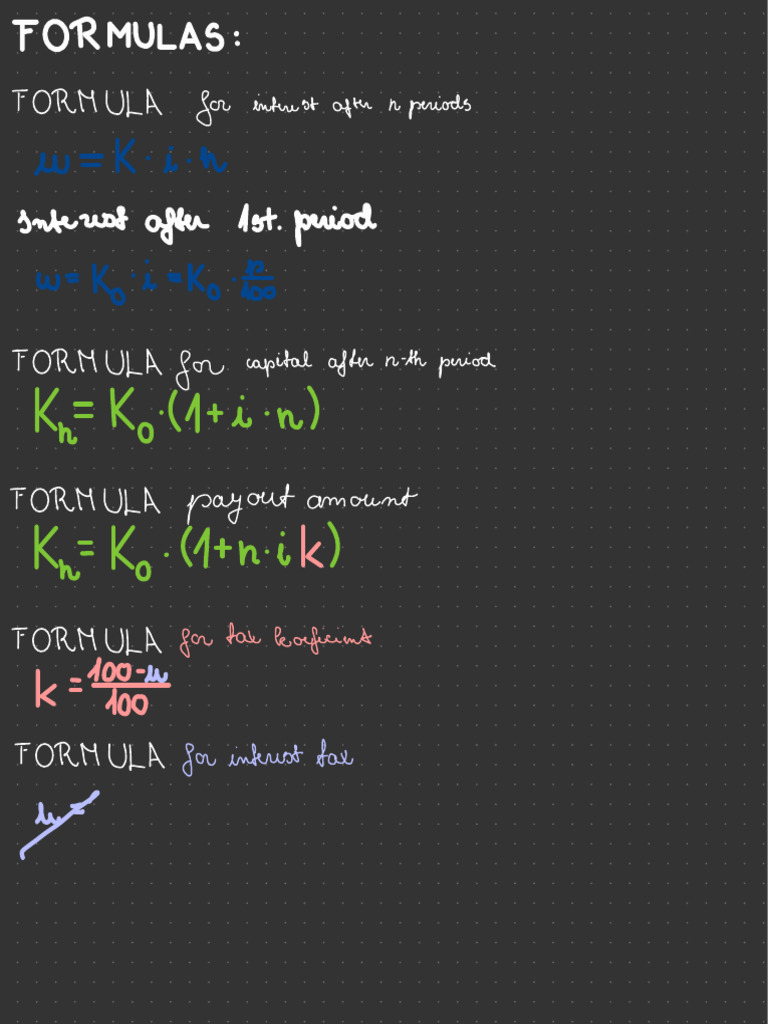 FORMULAS:
FORMULA for interest after n periods
u = K · i · n
Interest after 1st. period
u = K₀ · i = K₀ · p/100
FORMULA for capital after n-th period
Kₙ = K₀ · (1 + i · n)
FORMULA payout amount
Kₙ = K₀ · (1 + n · i k)
FORMULA for tax koeficient
k = 100 - u/100
FORMULA for interest tax
u =